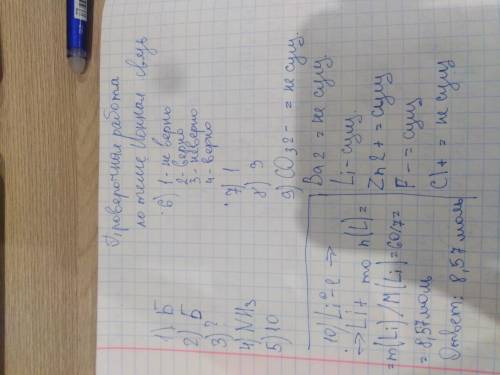 Проверочная работа
по теме Ионная связь
1) Б
2) Б
3) ?
4) NH3
5) 10
6) 1 - не верно
2 - верно
3 - неверно
4 - верно
7) 1
8) 3
9) CO3 2- = не сущ.
Ba2 = не сущ.
Li - сущ.
Zn2+ = сущ
F- = сущ
Cl+ = не сущ
10) Li⁰-e →
→ Li+ то n(L)=
=m(Li)/M(Li)=60/7=
= 8,57 моль
Ответ: 8,57 моль